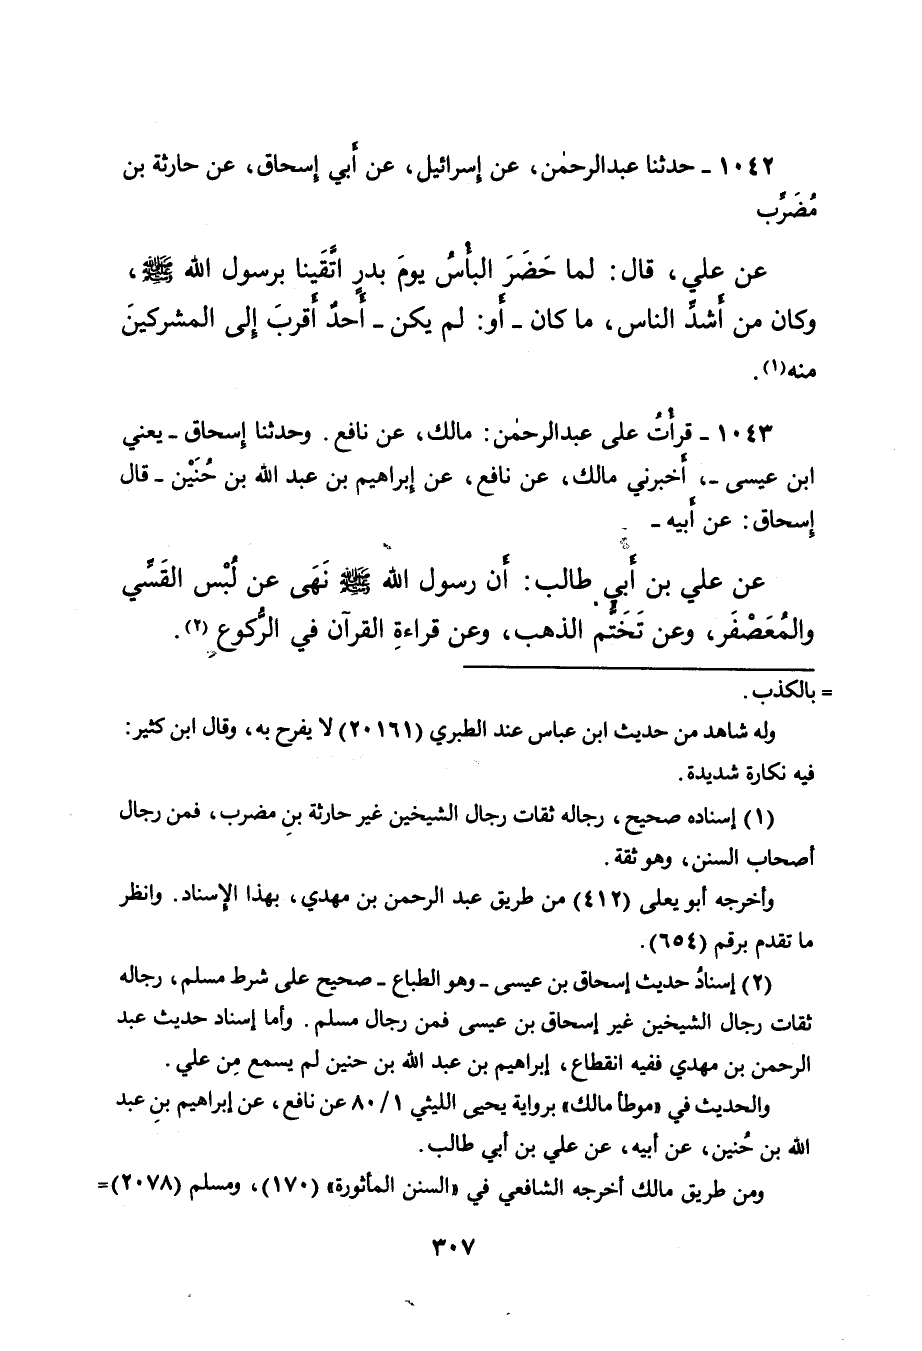 ١٠٤٢ ـ حدثنا عبدالرحمٰن، عن إسرائيل، عن أَبي إِسحاق، عن حارثة بن
مُضَرِّب
عن علي، قال: لما حَضَرَ البأْسُ يومَ بدرٍ اتَّقَينا برسول الله ﷺ،
وكان من أَشدِّ الناس، ما كان ـ أَو: لم يكن ـ أَحدٌ أَقربَ إِلى المشركينَ
منه(١).
١٠٤٣ ـ قرأْتُ على عبدالرحمٰن: مالك، عن نافع. وحدثنا إِسحاق ـ يعني
ابن عيسى ـ، أَخبرني مالك، عن نافع، عن إِبراهيم بن عبد الله بن حُنَيْن ـ قال
إِسحاق: عن أَبيه ـ
عن علي بن أَبي طالب: أَن رسول الله ﷺ نَهَى عن لُبْس القَسِّي
والمُعَصْفَر، وعن تَخَتُّم الذهب، وعن قراءةِ القرآن في الرُّكوع (٢).
= بالكذب.
وله شاهد من حديث ابن عباس عند الطبري (٢٠١٦١) لا يفرح به، وقال ابن كثير:
فيه نكارة شديدة.
(١) إسناده صحيح، رجاله ثقات رجال الشيخين غير حارثة بن مضرب، فمن رجال
أصحاب السنن، وهو ثقة.
وأخرجه أبو يعلى (٤١٢) من طريق عبد الرحمن بن مهدي، بهذا الإسناد. وانظر
ما تقدم برقم (٦٥٤).
(٢) إسنادُ حديث إسحاق بن عيسى ـ وهو الطباع ـ صحيح على شرط مسلم، رجاله
ثقات رجال الشيخين غير إسحاق بن عيسى فمن رجال مسلم. وأما إسناد حديث عبد
الرحمن بن مهدي ففيه انقطاع، إبراهيم بن عبد الله بن حنين لم يسمع مِن علي.
والحديث في «موطأ مالك» برواية يحيى الليثي ٨٠/١ عن نافع، عن إبراهيم بن عبد
الله بن حُنين، عن أبيه، عن علي بن أبي طالب.
ومن طريق مالك أخرجه الشافعي في «السنن المأثورة» (١٧٠)، ومسلم (٢٠٧٨)=
٣٠٧